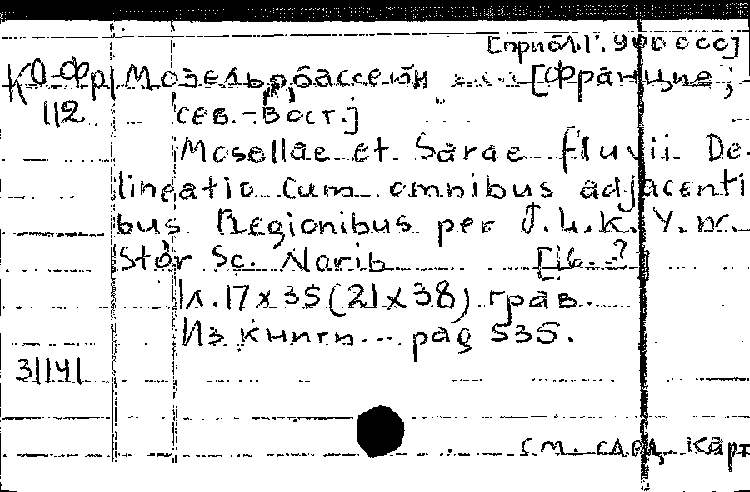 [прибл. 1:900 000]
КО-Фр Мозель, бассейн [Франция,
112 сев.-вост.]
Mosellae et Sarae fluvii De-
lineatio cum omnibus adjacenti
bus Regionibus per
Stör Sc. Narib [16..?
1л. 17x35 (21x38) грав.
Из книги... pag 535.
31141
см. след. карт